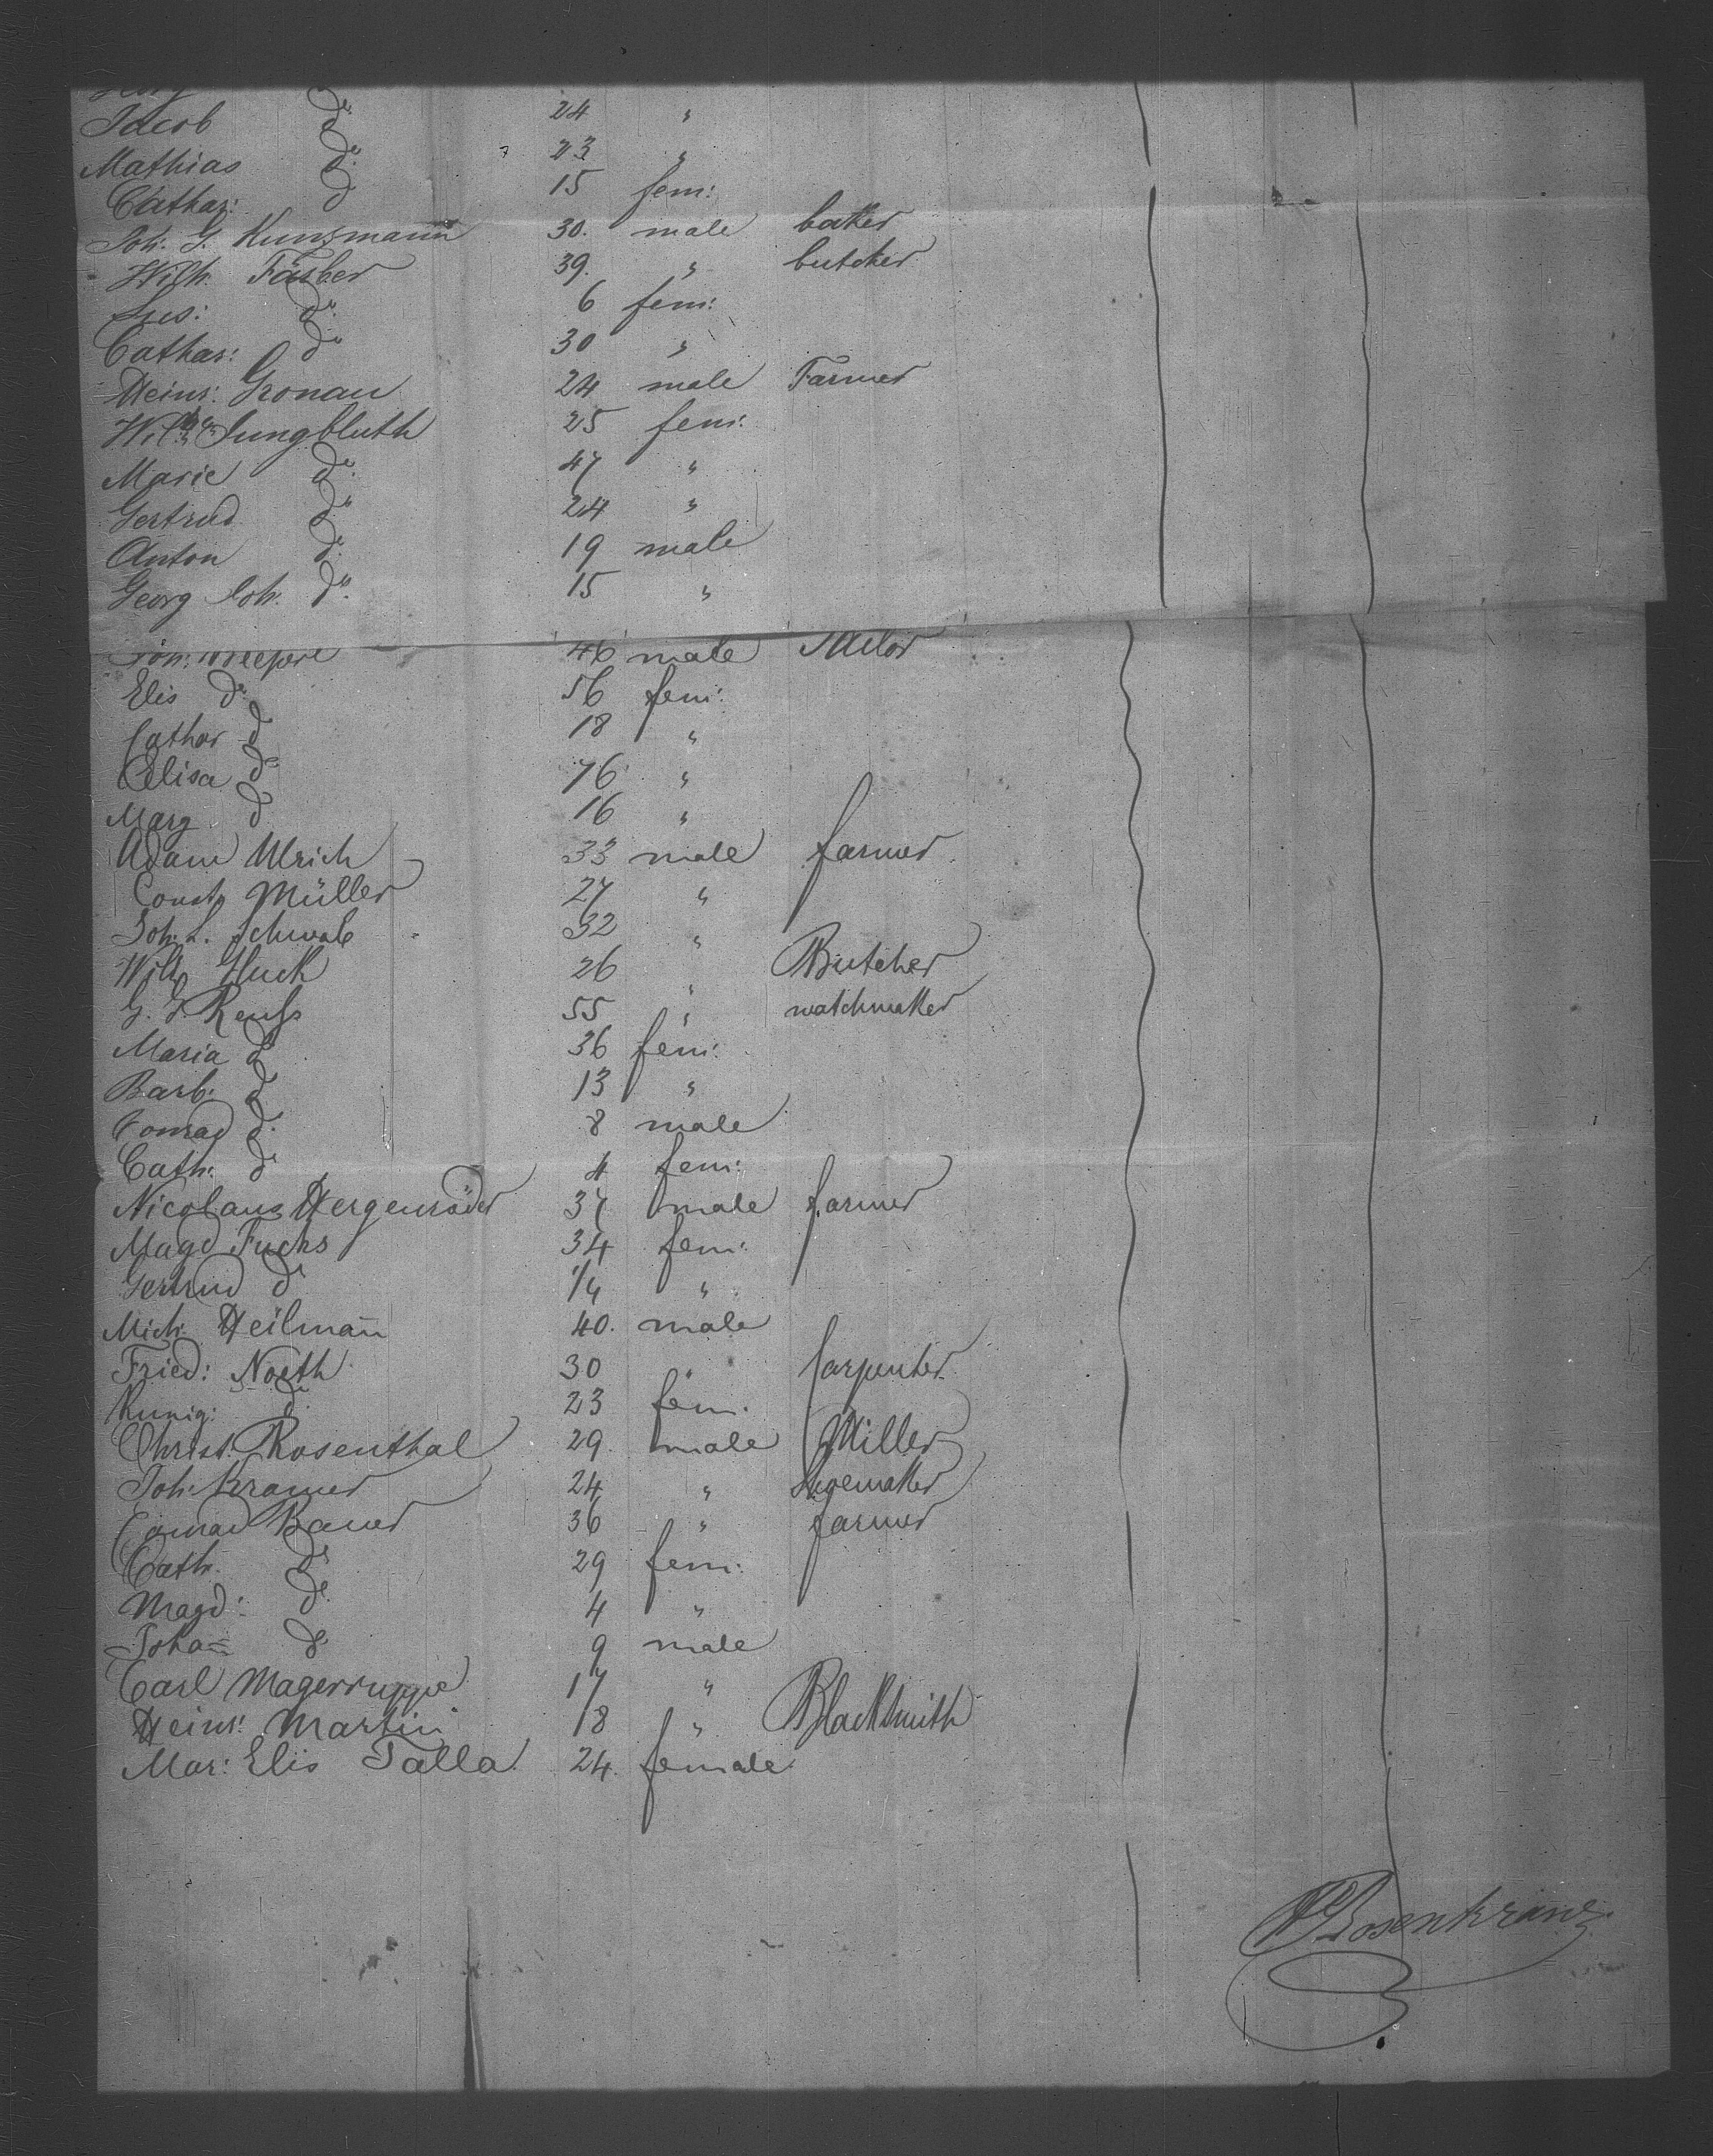 Jacob do 24 "
Mathias do 23 "
Cathar: do 15 fem:
Joh. G. Kunzmann 30. male baker
Wilh. Färber 39. " butcher
Sus: do 6 fem:
Cathar: do 30 "
Heinr: Gronau 24 male Farmer
Jungbluth 25 fem:
Marie do 47 "
Gertrud do 24 "
Anton do 19 male
Georg Joh. do 15 "
46 male
Elis do 56 fem:
Cathar do 18 "
Elisa do 76 "
Marg do 16 "
Adam Ulrich 33 male farmer
Const Müller 27 "
Joh. L. Schwab 32 "
Wilh Huck 26 " Butcher
G. J. Reuss 55 " watchmaker
Maria do 36 fem:
Barb: do 13 "
Conrad do 8 male
Cath: do 4 fem:
Nicolaus Hergenröder 37 male farmer
Magd Fuchs 34 fem:
Gertrud do 1/4 "
Mich. Heilmann 40. male
Fried: Noeth 30 " Carpenter
Kunig: do 23 fem:
Christ. Rosenthal 29. male Miller
Joh: Kramer 24 " Shoemaker
Conrad Bauer 36 " farmer
Cath. do 29 fem:
Magd: do 4 "
Joha= do 9 male
Carl 17 "
Heinr: Martin 18 " Blacksmith
Mar: Elis Talla 24. female
Rosenkranz